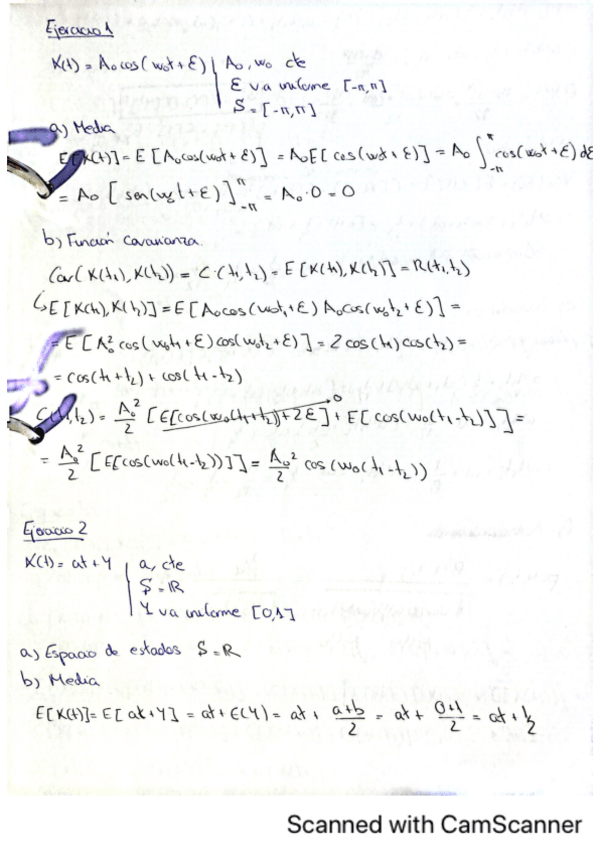 Ejercicio 1
X(t) = A₀ cos(w₀t + ε) | A₀, w₀ cte
ε va uniforme [-π, π]
S = [-π, π]
a) Media
E[X(t)] = E[A₀cos(w₀t + ε)] = A₀E[cos(w₀t + ε)] = A₀ ∫_{-π}^{π} cos(w₀t + ε) dε
= A₀ [sen(w₀t + ε)]_{-π}^{π} = A₀ · 0 = 0
b) Función covarianza.
Cov(X(t₁), X(t₂)) = C·(t₁, t₂) = E[X(t₁), X(t₂)] = R(t₁, t₂)
↳ E[X(t₁), X(t₂)] = E[A₀cos(w₀t₁ + ε) A₀cos(w₀t₂ + ε)] =
= E[A₀² cos(w₀t₁ + ε) cos(w₀t₂ + ε)] = 2 cos(t₁) cos(t₂) =
= cos(t₁ + t₂) + cos(t₁ - t₂)
C(t₁, t₂) = A₀²/2 [E[cos(w₀(t₁ + t₂)) + 2ε] + E[cos(w₀(t₁ - t₂)]] =
= A₀²/2 [E[cos(w₀(t₁ - t₂))]] = A₀²/2 cos(w₀(t₁ - t₂))
Ejercicio 2
X(t) = at + Y | a, cte
S = ℝ
Y va uniforme [0,1]
a) Espacio de estados S = ℝ
b) Media
E[X(t)] = E[at + Y] = at + E(Y) = at + (a+b)/2 = at + (0+1)/2 = at + 1/2
Scanned with CamScanner